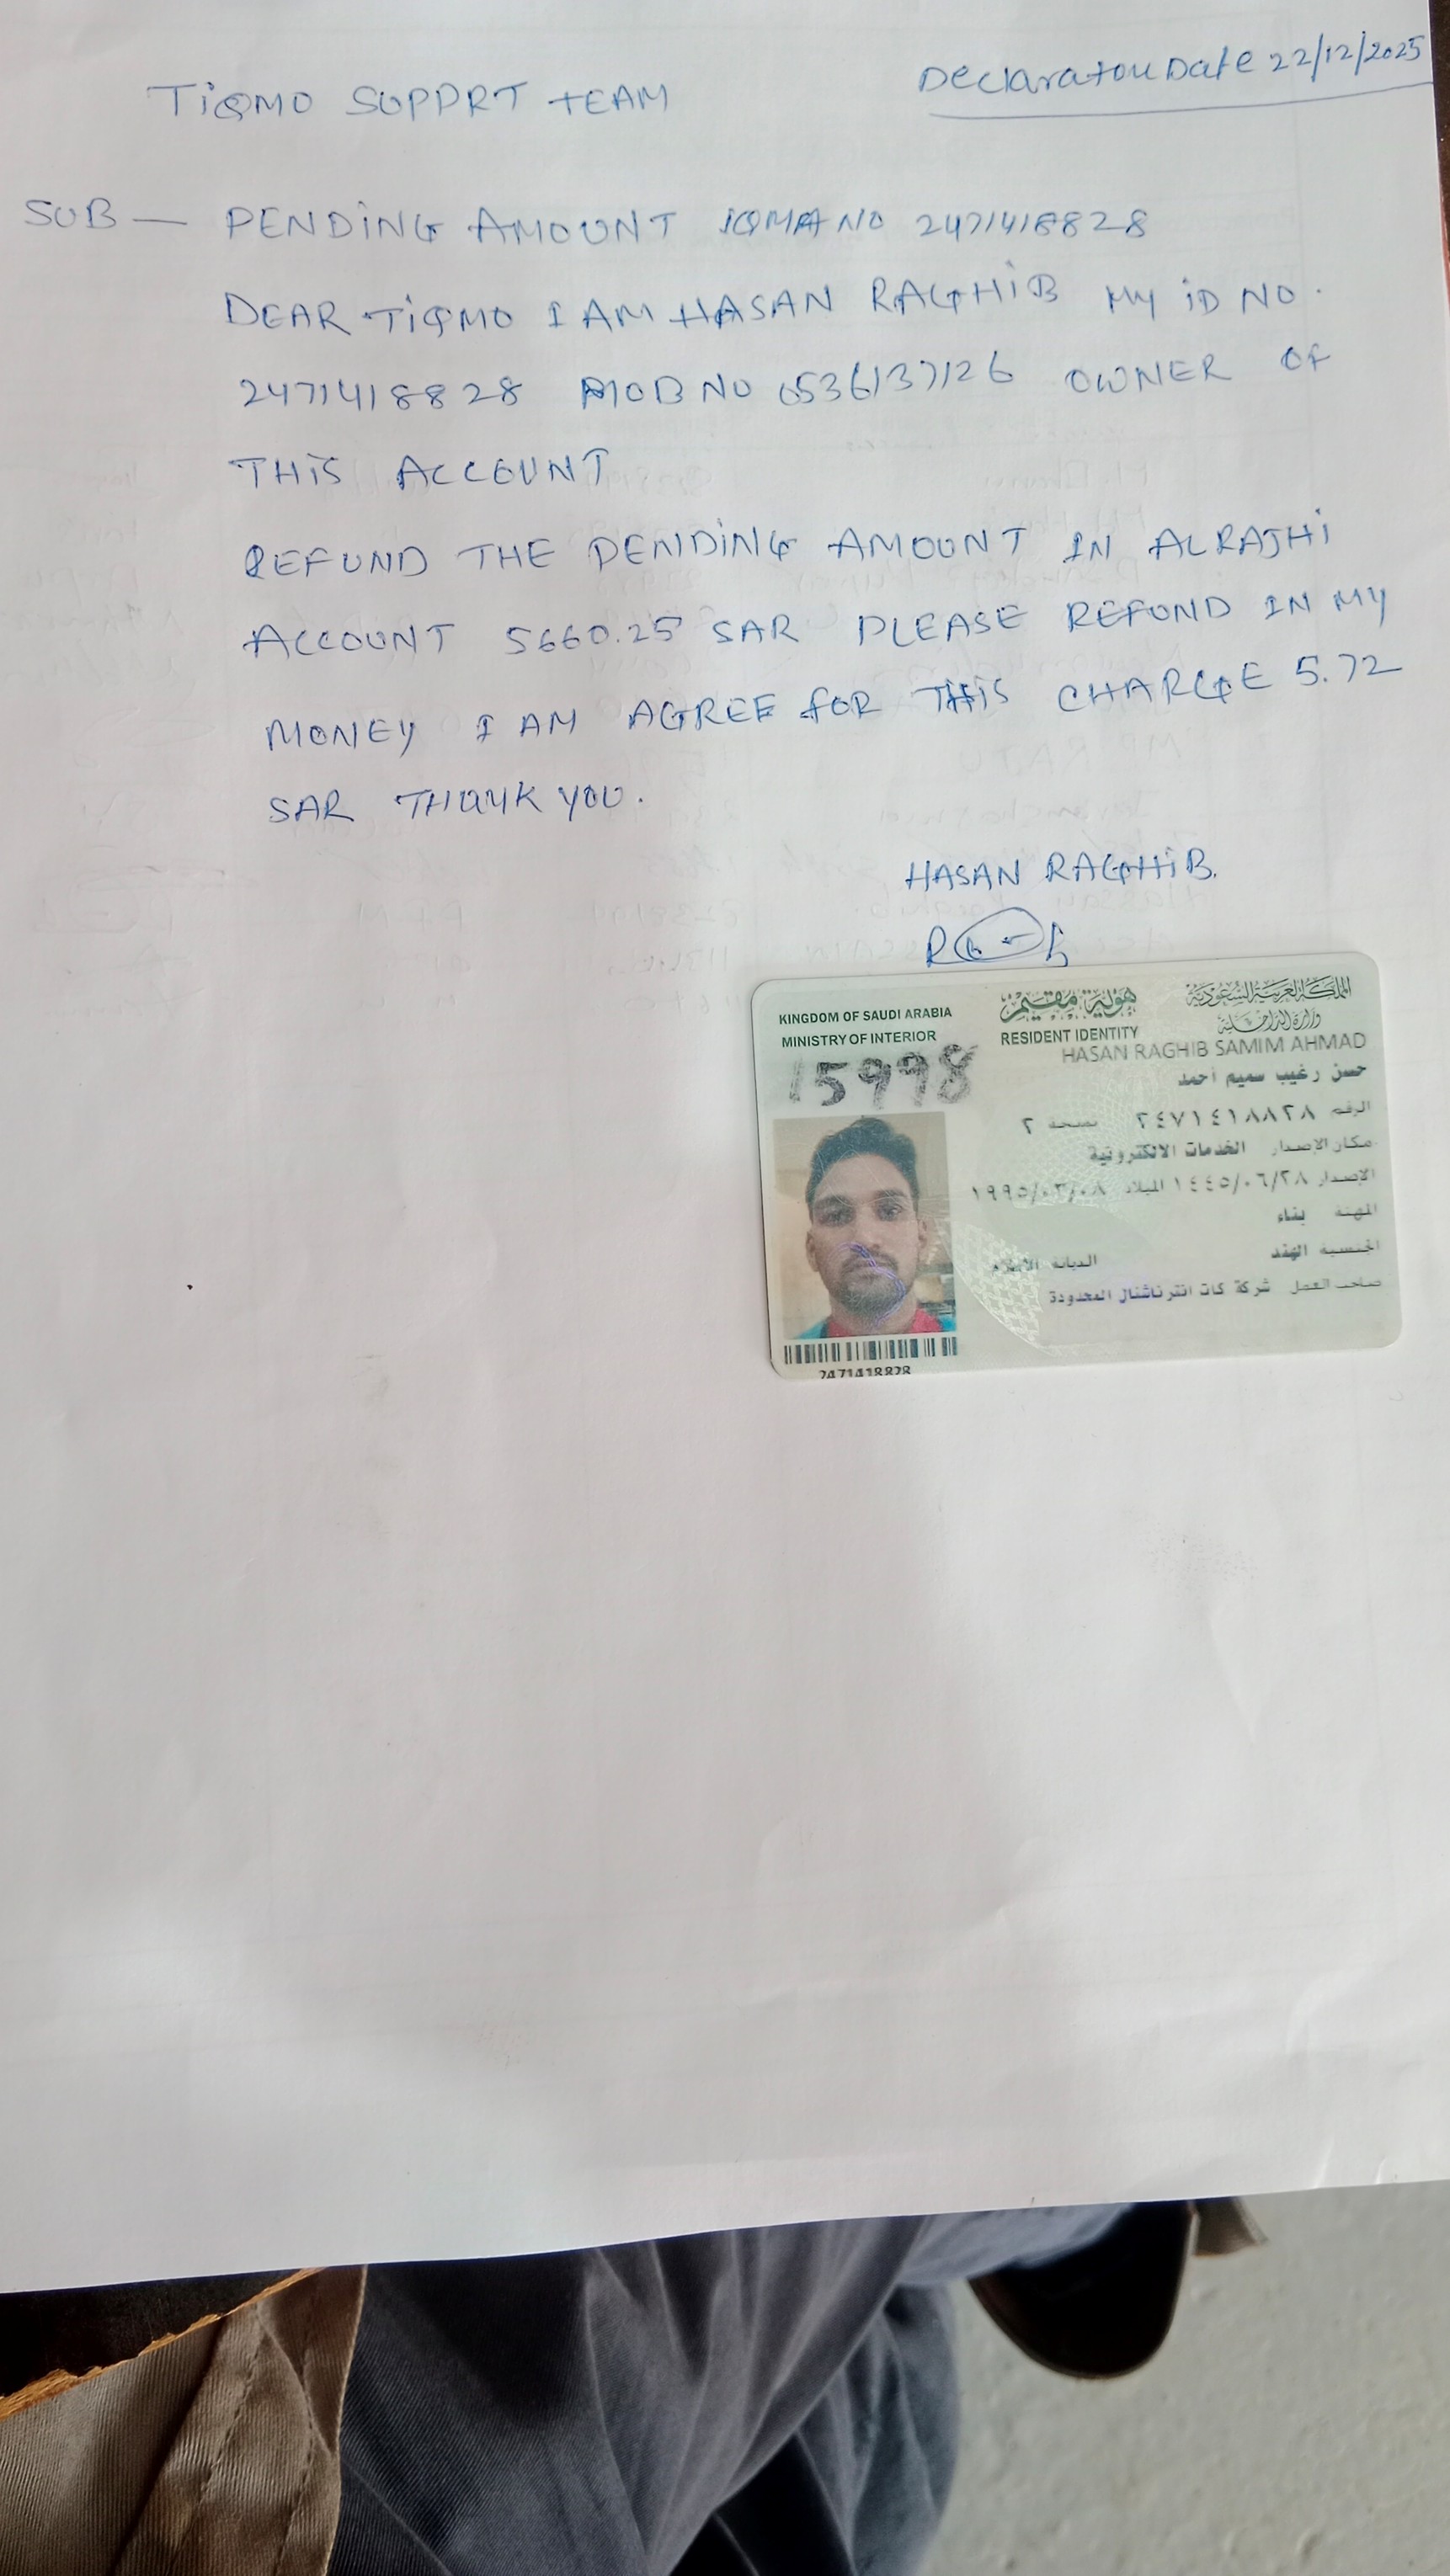 Declaration Date 22/12/2025
TiQMO SUPPORT TEAM
SUB — PENDiNG AMOUNT IQMA NO 2471418828
DEAR TiQMO I AM HASAN RAGHiB MY iD NO.
2471418828 MOB NO 0536137126 OWNER OF
THiS ACCOUNT
REFUND THE PENDiNG AMOUNT IN ALRAJHi
ACCOUNT 5660.25 SAR PLEASE REFUND IN MY
MONEY I AM AGREE FOR THiS CHARGE 5.72
SAR THANK YOU.
HASAN RAGHiB.
KINGDOM OF SAUDI ARABIA
MINISTRY OF INTERIOR
هوية مقيم
RESIDENT IDENTITY
المملكة العربية السعودية
وزارة الداخلية
15998
HASAN RAGHIB SAMIM AHMAD
حسن رغيب سميم احمد
الرقم ٢٤٧١٤١٨٨٢٨ نسخة ٢
مكان الإصدار الخدمات الالكترونية
الإصدار ١٤٤٥/٠٦/٢٨ الميلاد ١٩٩٥/٠٣/٠٨
المهنة بناء
الجنسية الهند الديانة الاسلام
صاحب العمل شركة كات انترناشنال المحدودة
2471418828